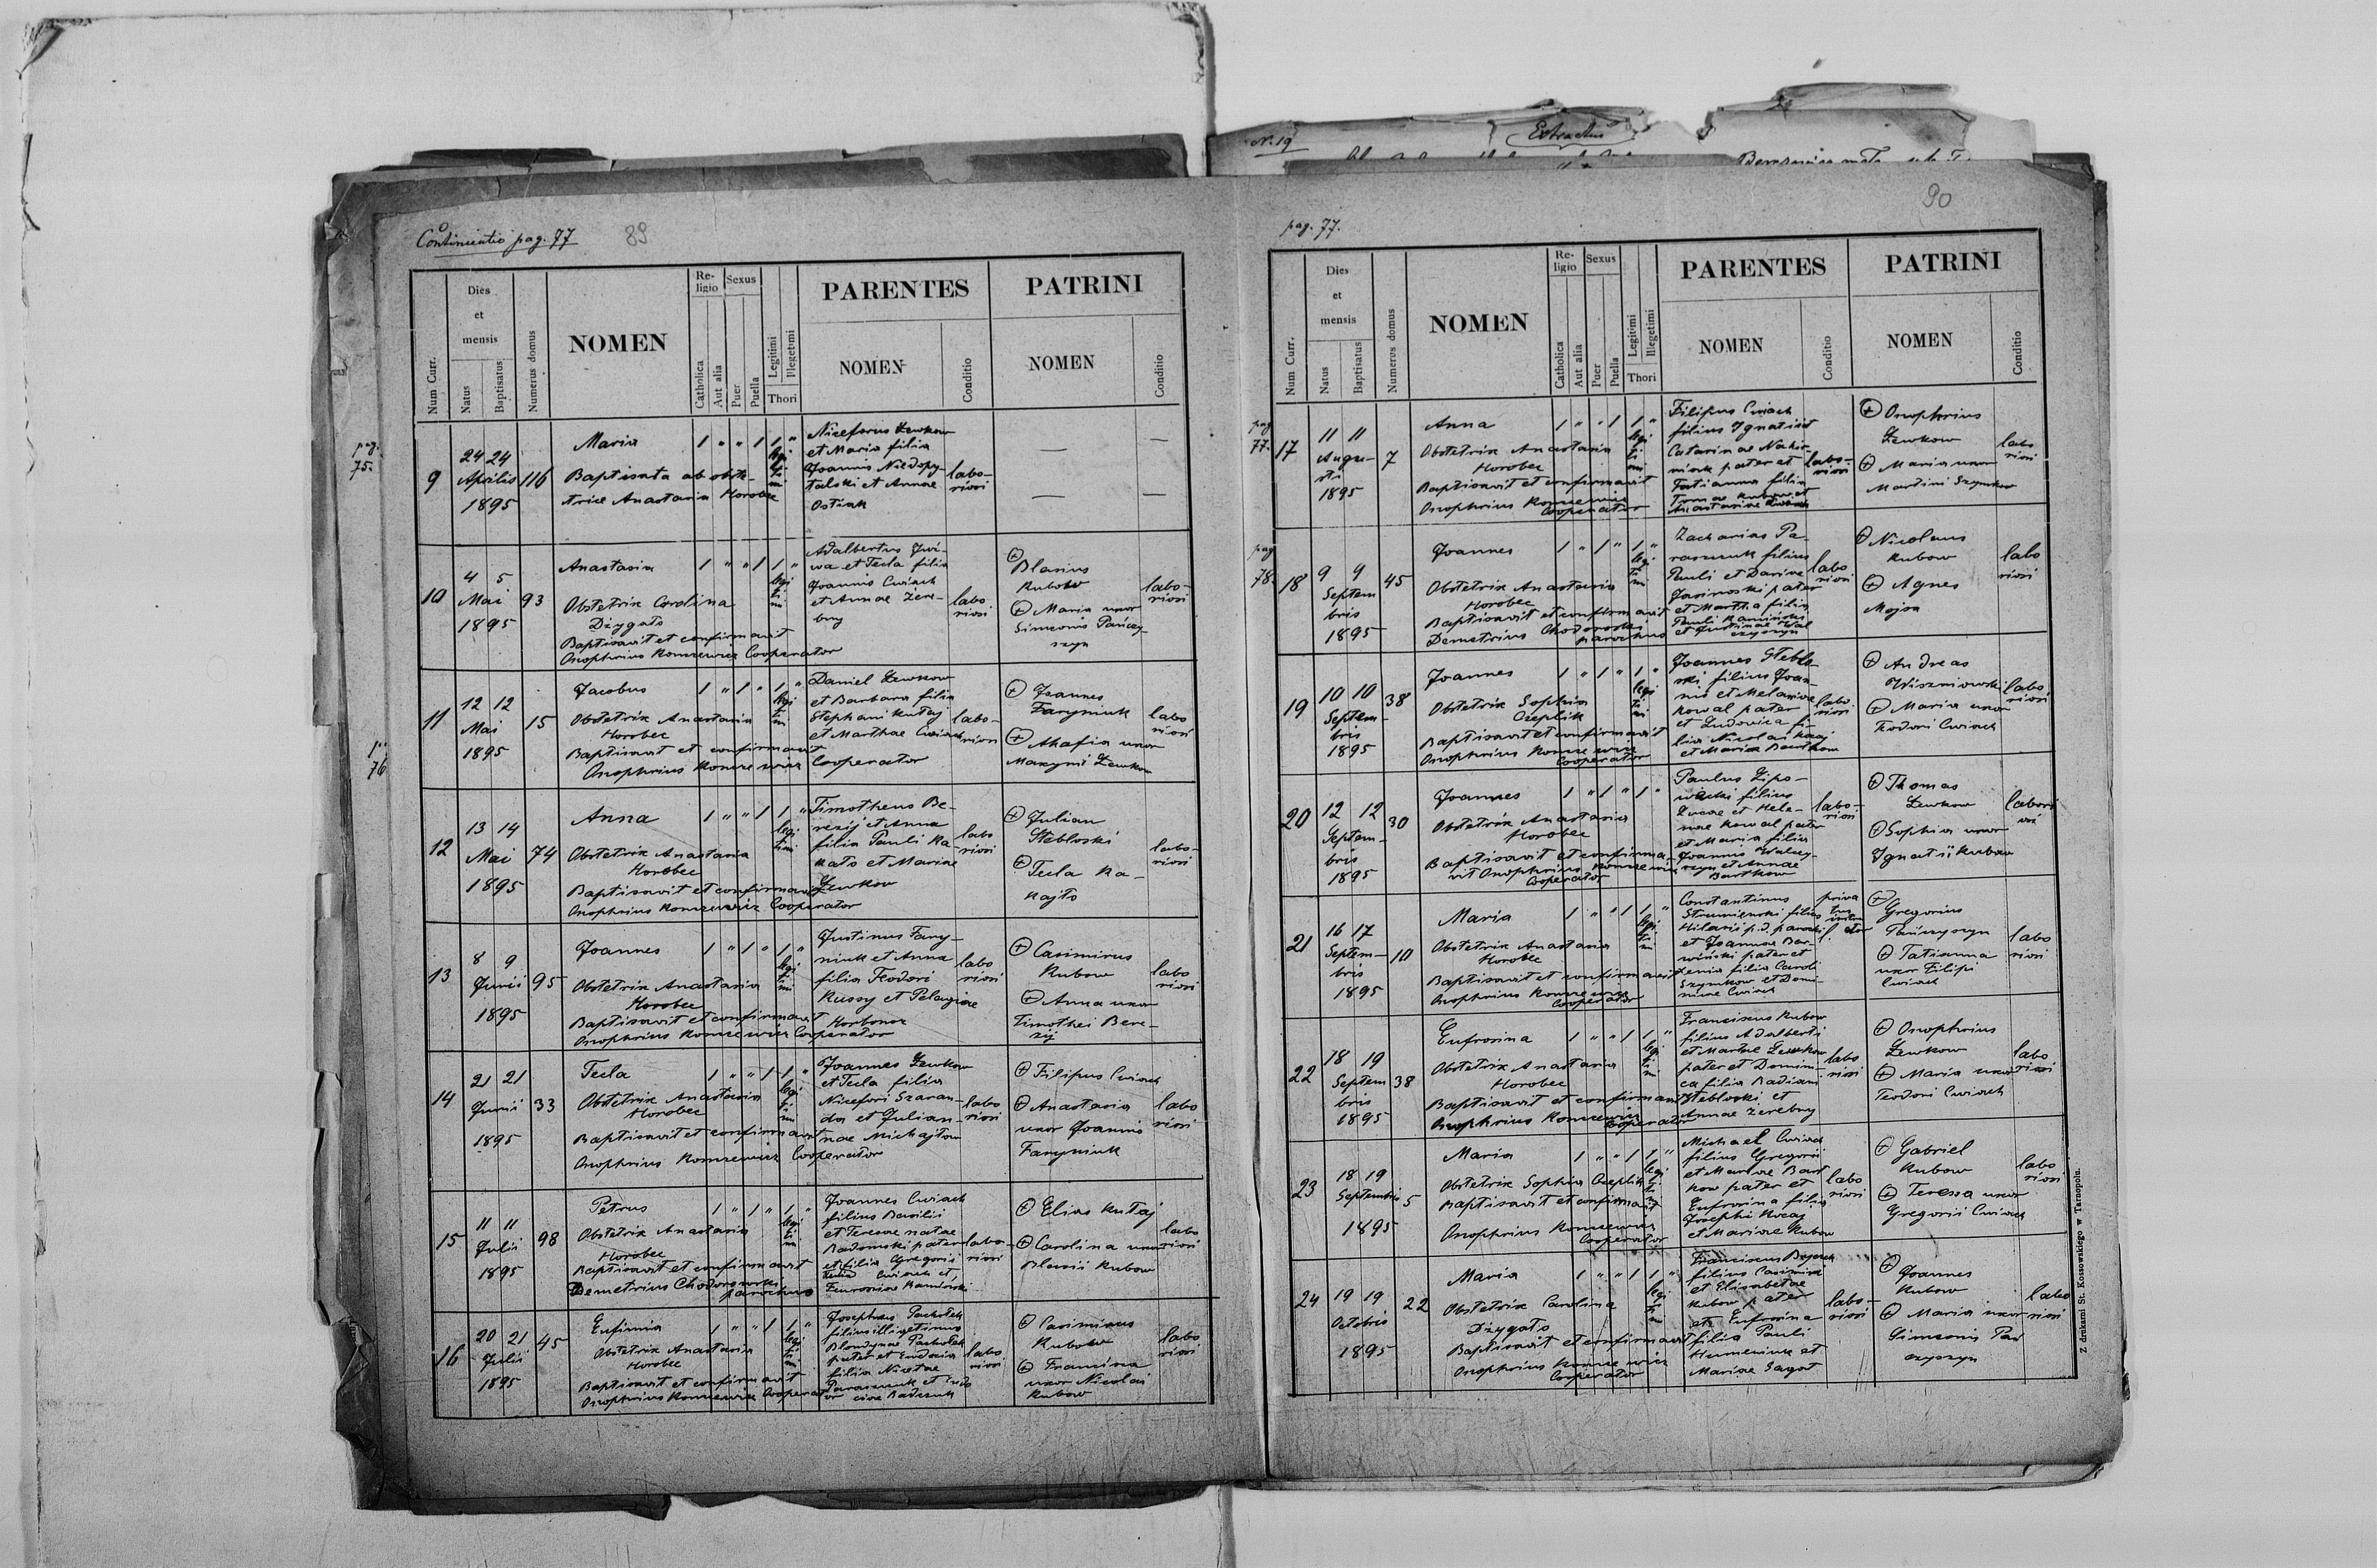 N. 19
Extractus
Continuatio pag. 77
89
Num Curr.
Dies
et
mensis
Natus
Baptisatus
Numerus domus
NOMEN
Re-
ligio
Catholica
Aut alia
Sexus
Puer
Puella
Legitimi
Illegetimi
Thori
PARENTES
NOMEN
Conditio
PATRINI
NOMEN
Conditio
pag.
75.
9
24 24
Aprilis
1895
116
Maria
Baptisata ab obste-
trice Anastasia Horobec
1 " " 1 1 "
legi
ti
mi
Niceforus Lewkow
et Maria filia
Joannis Niedopy-
talski et Annae
Ostrak
labo-
riosi
— —
— —
10
4 5
Mai
1895
93
Anastasia
Obstetrix Carolina
Dzygało
Baptisavit et confirmavit
Onophrius Komzewicz Cooperator
1 " " 1 1 "
legi
ti
mi
Adalbertus
et Tecla filia
Joannis Cwiach
et Annae Zere-
bny
labo
riosi
Blasius
Kubow
Maria uxor
Simeonis Pańczy-
szyn
labo-
riosi
p.
76
11
12 12
Mai
1895
15
Jacobus
Obstetrix Anastasia
Horobec
Baptisavit et confirmavit
Onophrius Komzewicz Cooperator
1 " 1 " 1 "
legi
ti
mi
Daniel Lewkow
et Barbara filia
Stephani Kutaj
et Marthae Cwiach
labo-
riosi
Joannes
Faryniuk
Ahafia uxor
Maxymi Lewkow
labo
riosi
12
13 14
Mai
1895
74
Anna
Obstetrix Anastasia
Horobec
Baptisavit et confirmavit
Onophrius Komzewicz Cooperator
1 " " 1 1 "
legi
timi
Timotheus Be-
rezij et Anna
filia Pauli Ka-
kato et Mariae
Lewkow
labo
riosi
Julian
Stebloski
Tecla Ka-
kajło
labo-
riosi
13
8 9
Junii
1895
95
Joannes
Obstetrix Anastasia
Horobec
Baptisavit et confirmavit
Onophrius Komzewicz Cooperator
1 " 1 " 1 "
legi
ti
mi
Justinus Fary-
niuk et Anna
filia Feodori
Kussy et Pelagiae
Horbonos
labo
riosi
Casimirus
Kubow
Anna uxor
Timothei Bere-
zij
labo
riosi
14
21 21
Junii
1895
33
Tecla
Obstetrix Anastasia
Horobec
Baptisavit et confirmavit
Onophrius Komzewicz Cooperator
1 " " 1 1 "
legi
ti
mi
Joannes Lewkow
et Tecla filia
Nicefori Szaran-
da et Julian-
nae Michajłow
labo
riosi
Filipus Cwiach
Anastasia
uxor Joannis
Faryniuk
labo
riosi
15
11 11
Julii
1895
98
Petrus
Obstetrix Anastasia
Horobec
Baptisavit et confirmavit
Demetrius Chodorowski
parochus
1 " 1 " 1 "
legi
ti
mi
Joannes Cwiach
filius Basilii
et Teresae natae
Radomski pater
et filia Gregorii
Cwiach et
Eufrosinae Kaminski
labo-
riosi
Elias Kutaj
Carolina uxor
Blasii Kubow
labo
riosi
16
20 21
Julii
1895
45
Eufimia
Obstetrix Anastasia
Horobec
Baptisavit et confirmavit
Onophrius Komzewicz Cooperator
1 " " 1 1 "
legi
ti
mi
Josephus Pachołek
filius illigetimus
Blondynae Pachołek
pater et Eudoxia
filia Nicetae
Paraszczuk et Eudo
xiae Radczuk
labo
riosi
Casimirus
Kubow
Francisca
uxor Nicolai
Kubow
labo
riosi
90
pag. 77.
Num Curr.
Dies
et
mensis
Natus
Baptisatus
Numerus domus
NOMEN
Re-
ligio
Catholica
Aut alia
Sexus
Puer
Puella
Legitimi
Illegetimi
Thori
PARENTES
NOMEN
Conditio
PATRINI
NOMEN
Conditio
pag.
77.
17
11 11
Augu-
sti
1895
7
Anna
Obstetrix Anastasia
Horobec
Baptisavit et confirmavit
Onophrius Komzewicz
Cooperator
1 " " 1 1 "
legi
ti
mi
Filipus Cwiach
filius Ignatii et
Catarinae
pater et
Tatianna filia
Tomae Kubow et
Anastasiae
labo-
riosi
Onophrius
Lewkow
Maria uxor
Martini Szymkow
labo
riosi
pag
78.
18
9 9
Septem
bris
1895
45
Joannes
Obstetrix Anastasia
Horobec
Baptisavit et confirmavit
Demetrius Chodorowski
parochus
1 " 1 " 1 "
legi
ti
mi
Zacharias Pa-
raszczuk filius
Pauli et Dariae
Jasinoski pater
et Martha filia
Pauli Kaminski
et Justinae Wal
czyszyn
labo
riosi
Nicolaus
Kubow
Agnes
Mojsa
labo
riosi
19
10 10
Septem-
bris
1895
38
Joannes
Obstetrix Sophia
Czeplik
Baptisavit et confirmavit
Onophrius Komzewicz
Cooperator
1 " 1 " 1 "
legi
ti
mi
Joannes Steblo-
ski filius Joan-
nis et Melaniae
Kowal pater
et Ludovica fi-
lia Nicolai
et Mariae Bartkow
labo-
riosi
Andreas
Wiszniowski
Maria uxor
Fedori Cwiach
labo
riosi
20
12 12
Septem-
bris
1895
30
Joannes
Obstetrix Anastasia
Horobec
Baptisavit et confirma-
vit Onophrius Komzewicz
Cooperator
1 " 1 " 1 "
Paulus Lipo-
wiecki filius
Lucae et Hele-
nae Kowal pater
et Maria filia
Joannis Walczy-
szyn et Annae
Bartkow
labo-
riosi
Thomas
Lewkow
Sophia uxor
Ignatii Kubow
labori
osi
21
16 17
Septem-
bris
1895
10
Maria
Obstetrix Anastasia
Horobec
Baptisavit et confirmavit
Onophrius Komzewicz
Cooperator
1 " " 1 1 "
legi
ti
mi
Constantinus
Strumienski filius
Hilarii p.d. parochi
et Joannae Bar-
wiński pater et
Xenia filia Caroli
Szymkow et Domi-
nicae Cwiach
priva
tus
Gregorius
Pańczyszyn
Tatianna
uxor Filipi
Cwiach
labo
riosi
22
18 19
Septem
bris
1895
38
Eufrosina
Obstetrix Anastasia
Horobec
Baptisavit et confirmavit
Onophrius Komzewicz
Cooperator
1 " " 1 1 "
legi
ti
mi
Franciscus Kubow
filius Adalberti
et Martae Lewkow
pater et Domini-
ca filia Radiani
Stebloski et
Annae Zerebny
labo
riosi
Onophrius
Lewkow
Maria uxor
Teodori Cwiach
labo
riosi
23
18 19
Septembris
1895
5
Maria
Obstetrix Sophia Czeplik
Baptisavit et confirmavit
Onophrius Komzewicz
Cooperator
1 " " 1 1 "
legi
ti
mi
Michael Cwiach
filius Gregorii
et Mariae Bart
kow pater et
Eufrosina filia
Josephi
et Mariae Kubow
labo
riosi
Gabriel
Kubow
Teressa uxor
Gregorii Cwiach
labo
riosi
24
19 19
Octobris
1895
22
Maria
Obstetrix Carolina
Dzygało
Baptisavit et confirmavit
Onophrius Komzewicz
Cooperator
1 " " 1 1 "
legi
ti
mi
Franciscus
filius Casimiri
et Elisabetae
Kubow pater
et Eufrosina
filia Pauli
Humeniuk et
Mariae Sagat
labo-
riosi
Joannes
Kubow
Maria uxor
Simeonis Pań
czyszyn
labo
riosi
Z drukarni St. Kossowskiego w Tarnopolu.